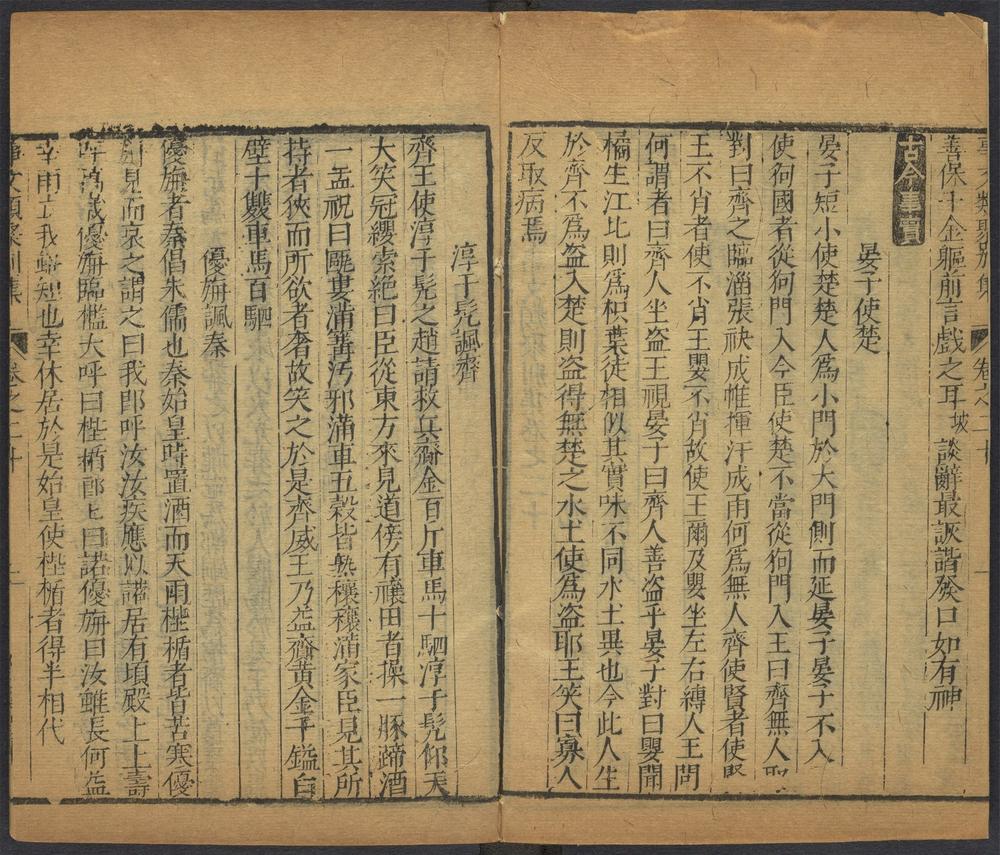 事文類聚別集 卷之二十
善保千金軀前言戲之耳坡談辭最詼諧發口如有神
古今事實
晏子使楚
晏子短小使楚楚人爲小門於大門側而延晏子晏子不入
使狗國者從狗門入今臣使楚不當從狗門入王曰齊無人耶
對曰齊之臨淄張袂成帷揮汗成雨何爲無人齊使賢者使賢
王不肖者使不肖王嬰不肖故使王爾及嬰坐左右縛人王問
何謂者曰齊人坐盜王視晏子曰齊人善盜乎晏子對曰嬰聞
橘生江北則爲枳葉徒相似其實味不同水土異也今此人生
於齊不爲盜入楚則盜得無楚之水土使爲盜耶王笑曰寡人
反取病焉
淳于髡諷齊
齊王使淳于髡之趙請救兵齎金百斤車馬十駟淳于髡仰天
大笑冠纓索絕曰臣從東方來見道傍有禳田者操一豚蹄酒
一盂祝曰甌窶滿篝汚邪滿車五穀皆熟穰穰滿家臣見其所
持者狹而所欲者奢故笑之於是齊威王乃益齎黃金千鎰白
璧十雙車馬百駟
優旃諷秦
優旃者秦倡朱儒也秦始皇時置酒而天雨陛楯者皆苦寒優
旃見而哀之謂之曰我即呼汝汝疾應以諾居有頃殿上上壽
呼萬歲優旃臨檻大呼曰陛楯郎郎曰諾優旃曰汝雖長何益
幸雨立我雖短也幸休居於是始皇使陛楯者得半相代
事文類聚別集 卷之二十